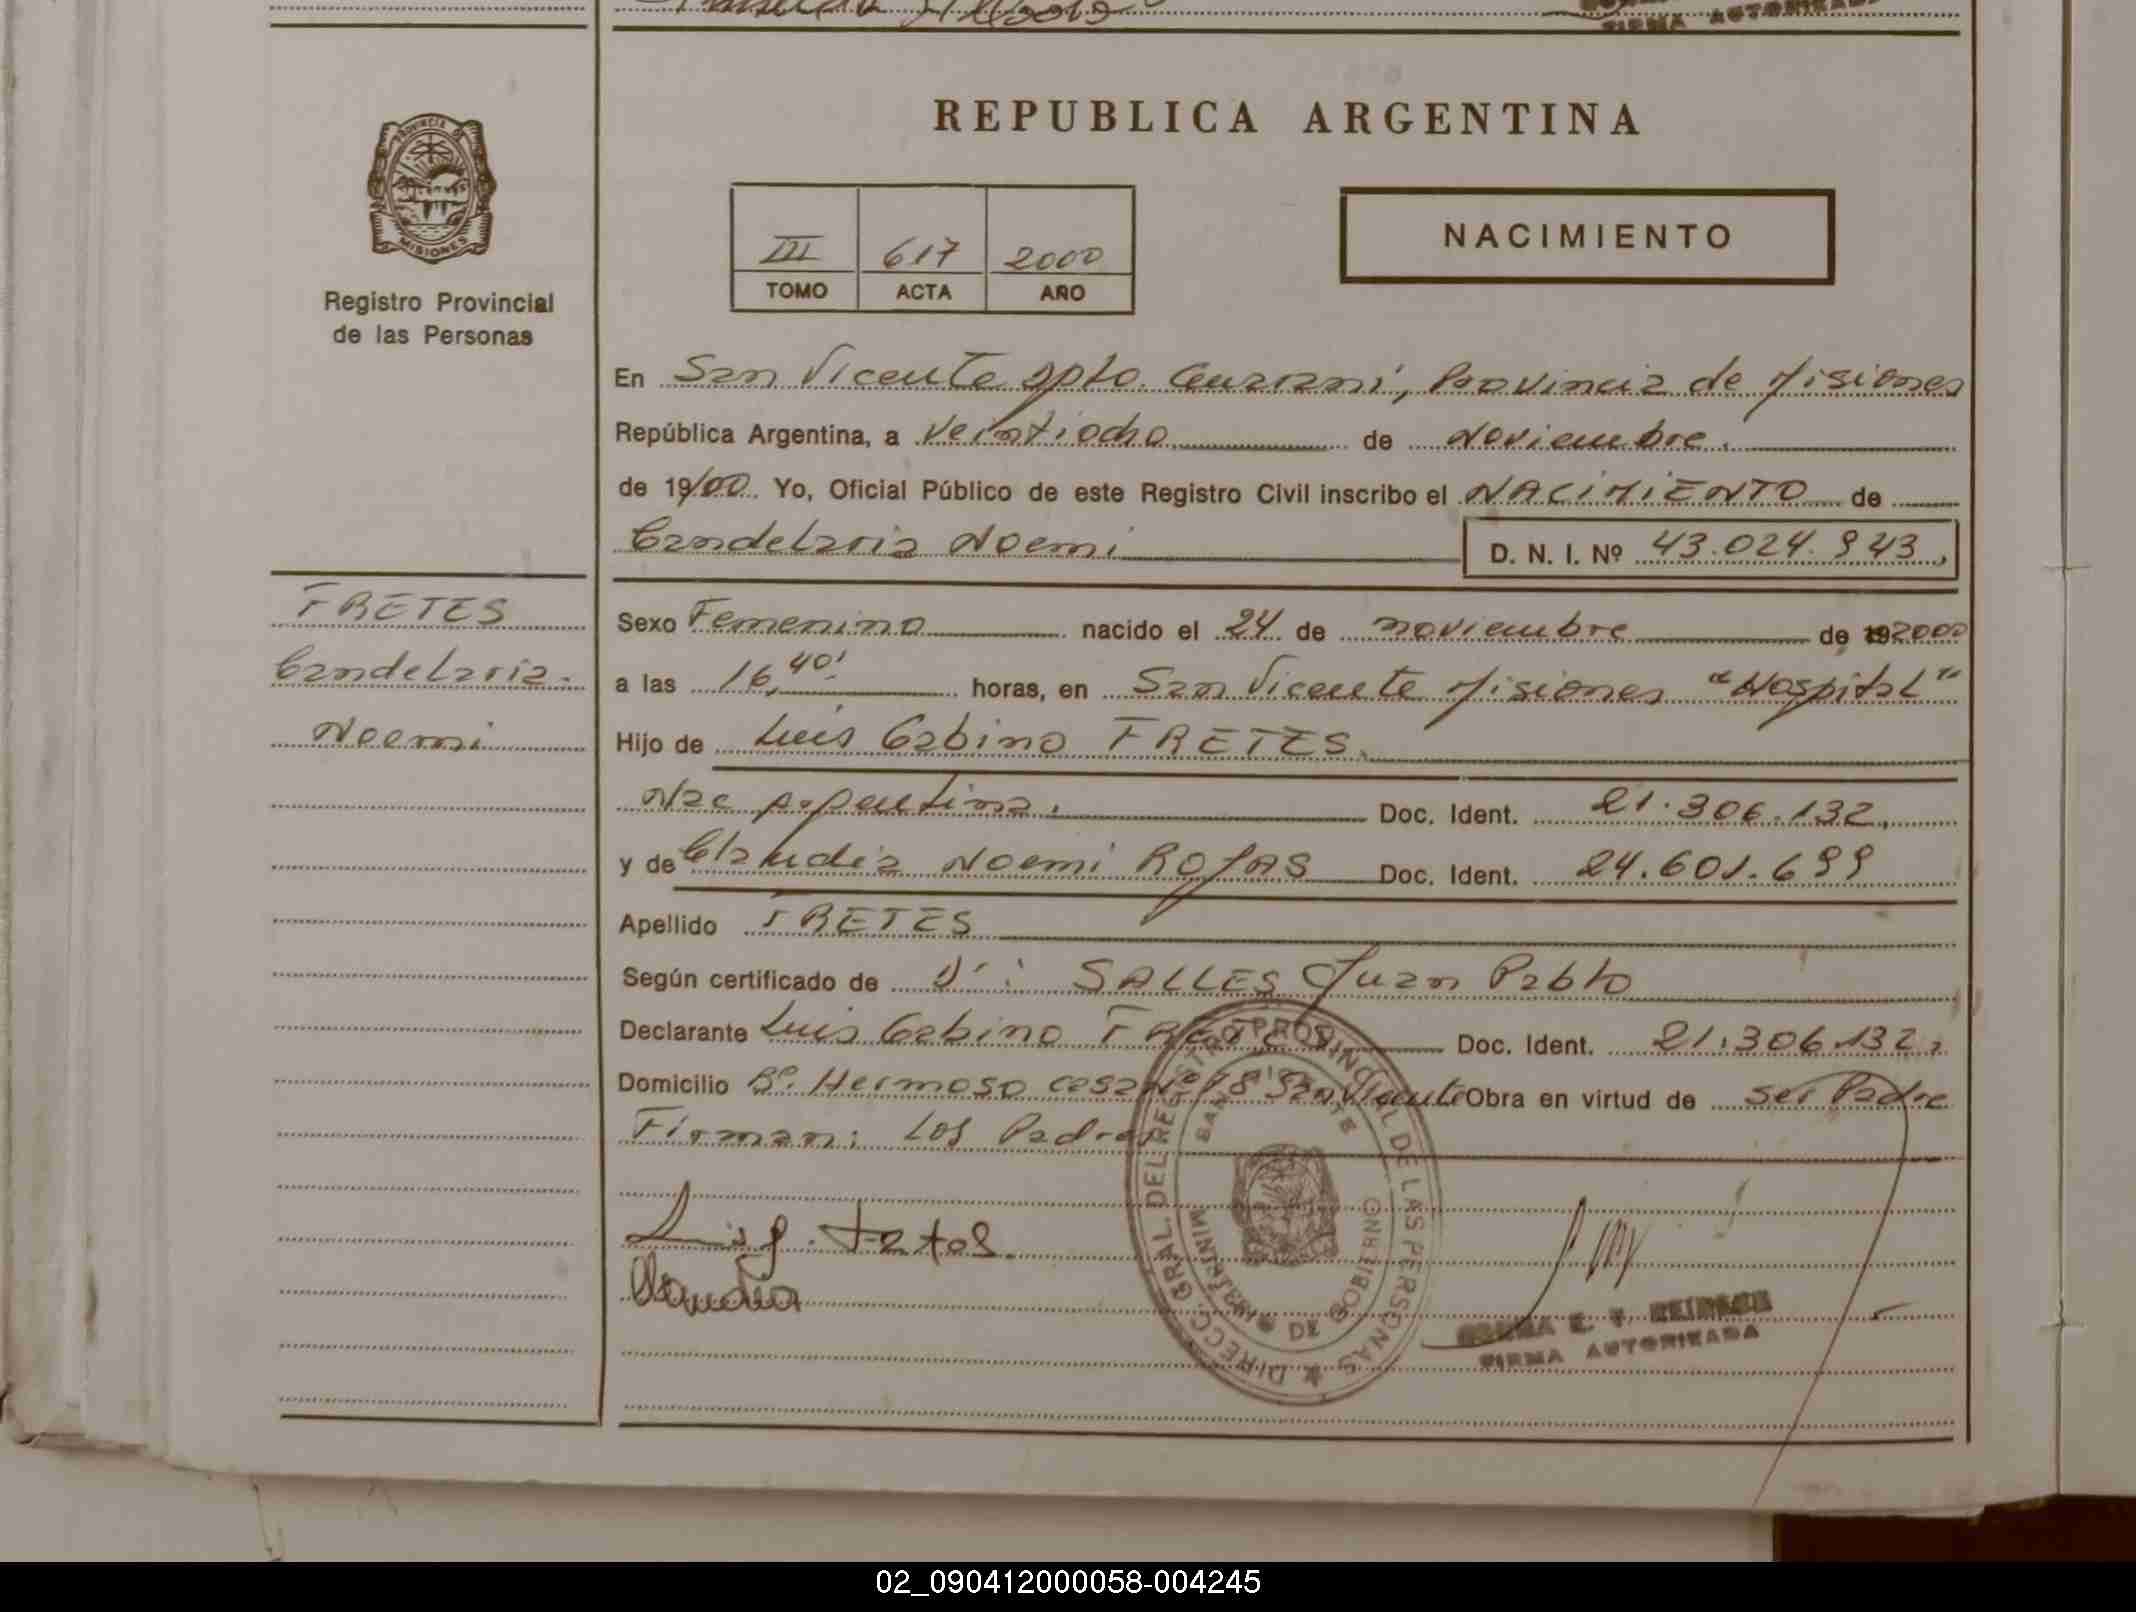 REPUBLICA ARGENTINA
PROVINCIA DE
MISIONES
Registro Provincial
de las Personas
III 617 2000
TOMO ACTA AÑO
NACIMIENTO
En San Vicente Dpto. Guaraní, Provincia de Misiones
República Argentina, a Veintiocho de Noviembre.
de 19/00. Yo, Oficial Público de este Registro Civil inscribo el NACIMIENTO de
Candelaria Noemi D. N. I. Nº 43.024.943.
FRETES
Candelaria.
Noemi
Sexo Femenino nacido el 24 de noviembre de 192000
a las 16,40' horas, en San Vicente Misiones "Hospital"
Hijo de Luis Gabino FRETES.
Nac Argentina. Doc. Ident. 21.306.132.
y de Claudia Noemi ROJAS Doc. Ident. 24.601.699
Apellido FRETES
Según certificado de Dr: SALLES Juan Pablo
Declarante Luis Gabino FRETES Doc. Ident. 21.306.132.
Domicilio Bº. Hermoso casa Nº 18 San Vicente Obra en virtud de ser Padre
Firman: Los Padres
Claudia
DIRECC. GRAL. DEL REGISTRO PROVINCIAL DE LAS PERSONAS
SAN VICENTE
MINISTERIO DE GOBIERNO
FIRMA AUTORIZADA
02_090412000058-004245